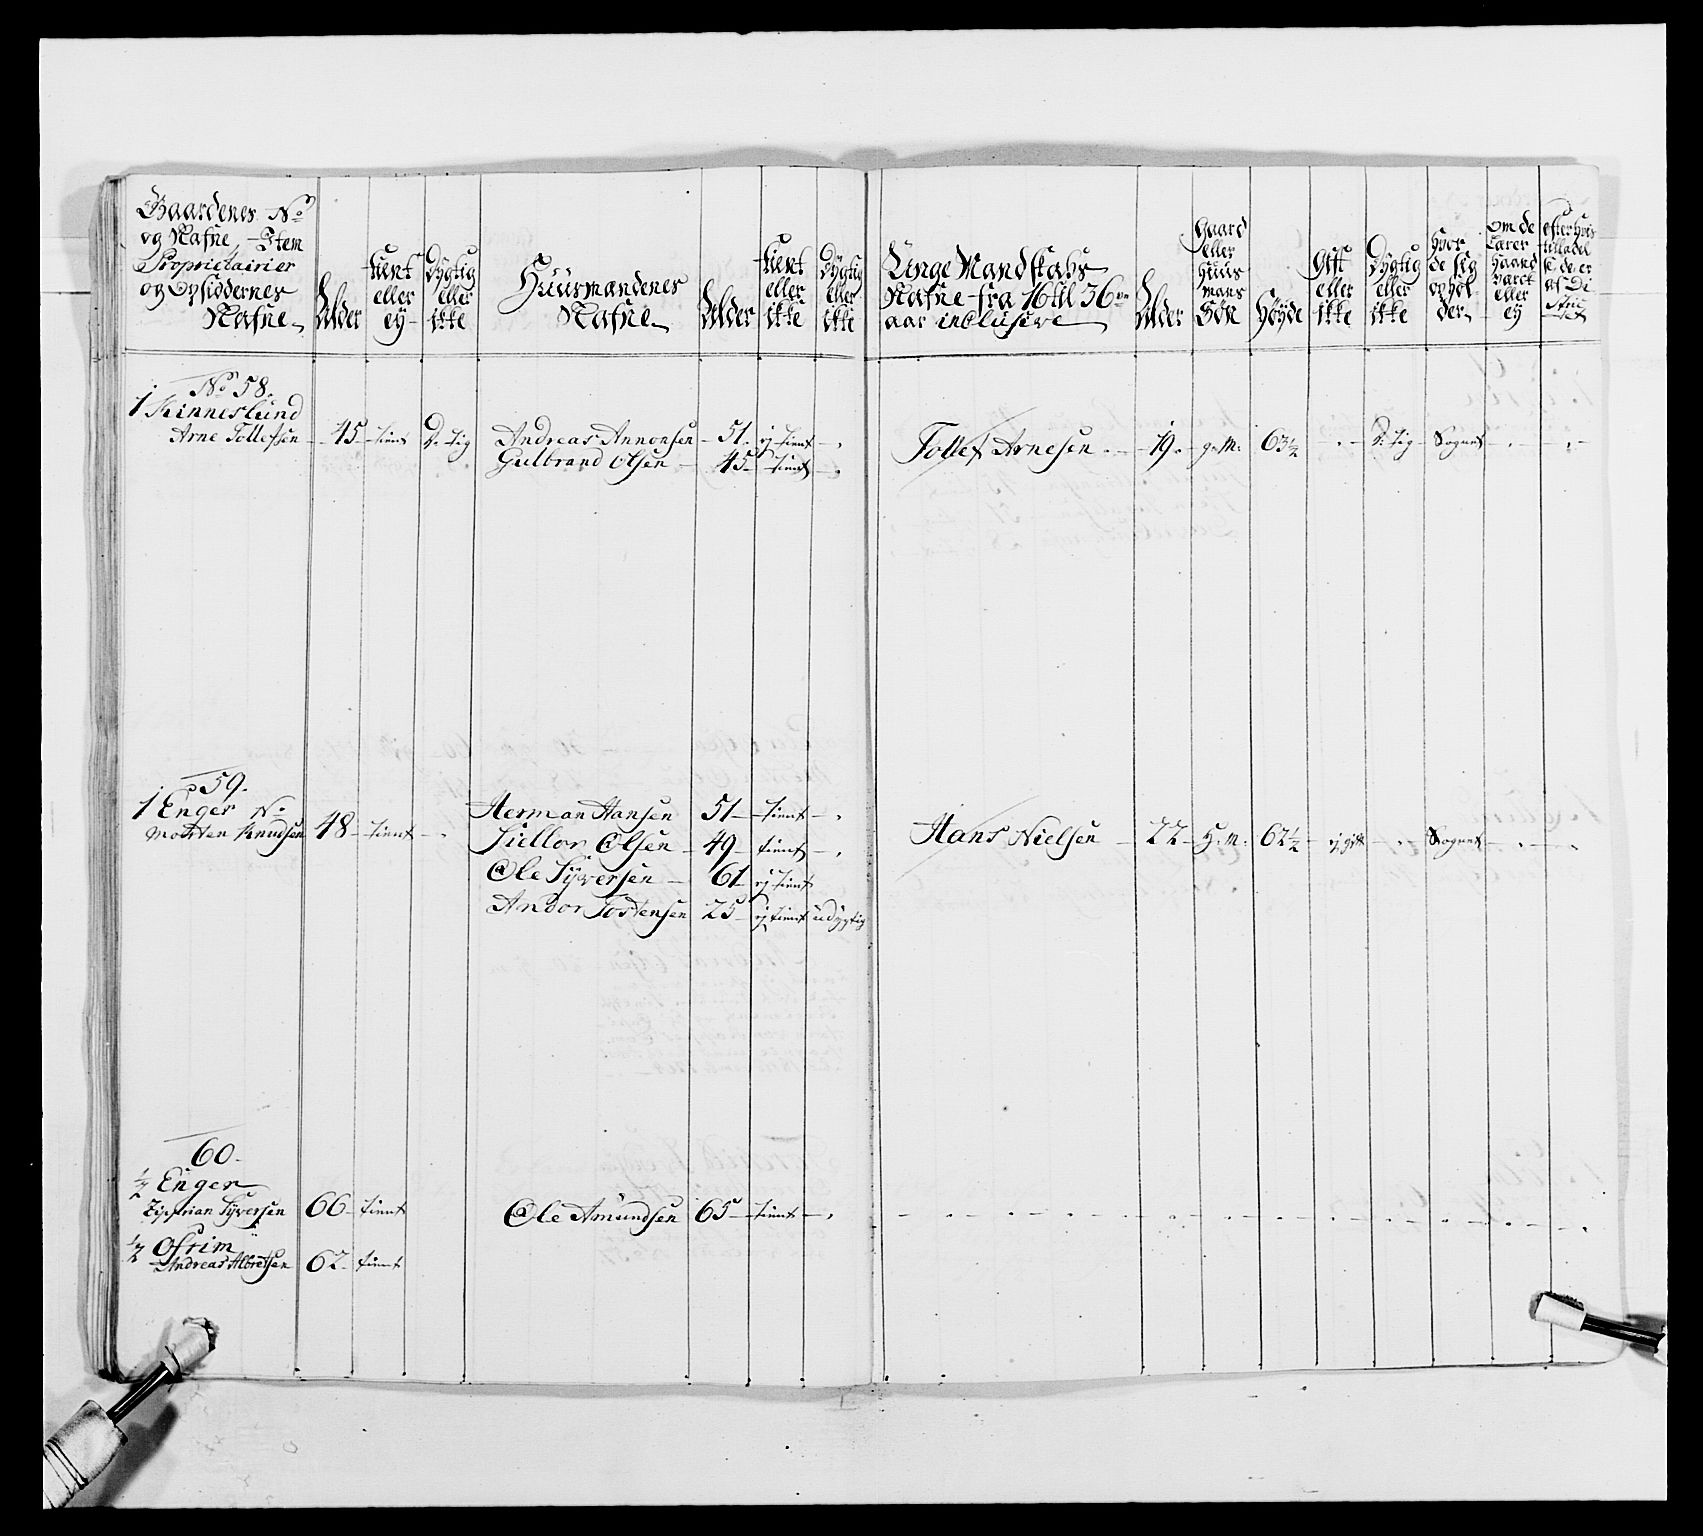 Gaardenes No
og Nafne, Item
Proprietairier
og Opsiddernes
Nafne
Alder
tient eller ey
Dygtig eller ikke
Huusmandenes Nafne
Alder
tient eller ikke
Dygtig eller ikke
Unge Mandskabs
Nafne fra 16 til 36
aar inclusive
Alder
Gaard eller Huus Mans Søn
Høyde
Gift eller ikke
Dygtig eller ikke
Hvor de sig ophol der
om de Larer Haand Varck eller ey
No 58.
1 Kinneslund
Arne Tollefsen 45 tient D. tig Andreas Annonsen 51. ej tient Tollef Arnesen 19. g. M. 63½ D. tig Sognet
Gulbrand Olsen 45 tient
59.
1 Enger No
Morten Knudsen 48 tient Herman Hansen 51 tient Hans Nielsen 22 H. M. 62½ ej gift Sognet
Siellor Olsen 49 tient
Ole Syversen 61 ej tient
Andor Tostensen 25 ej tient udygtig
60.
½ Enger
Ziprian Syversen 66 tient Ole Amundsen 65 tient
½ Ofrim
Andreas Albretsen 62. tient